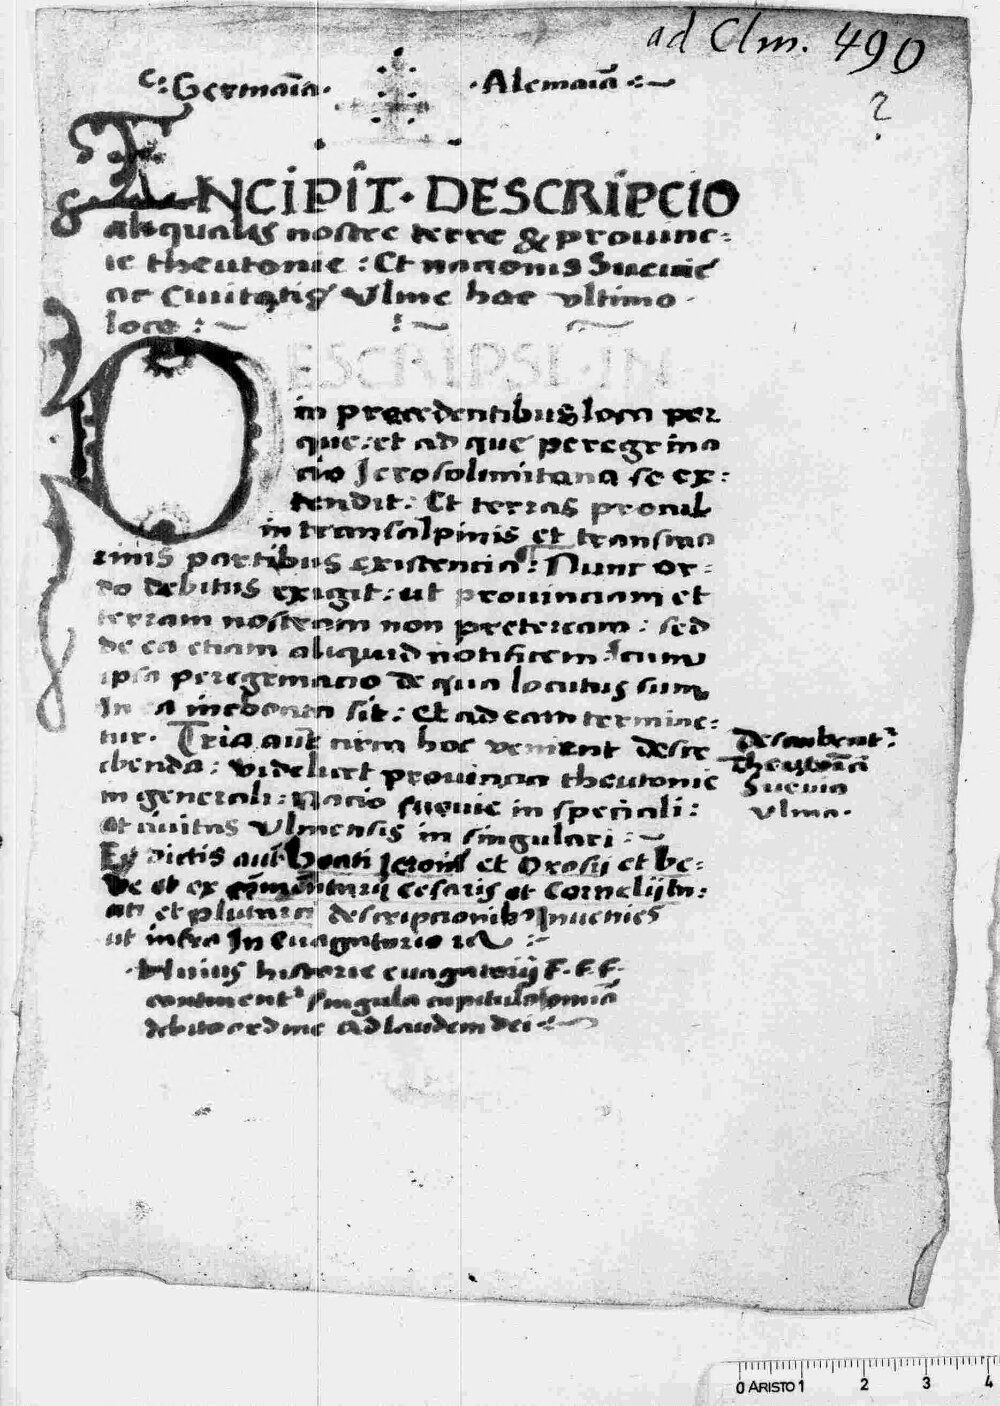 ad Clm. 490
?
Germaīa. . Alemaīa
INCIPIT. DESCRIPCIO
aliqualis nostre terre & prouinc=
ie theutonie : Et nacionis Sueuie
ac Ciuitatis Vlme hoc vltimo
loco :~
ESCRIPSI. IN
in precedentibus loca per
que: et ad que peregrina
cio Jerosolimitana se ex:
tendit: Et terras procul
in transalpinis et transma
rinis partibus existencia: Nunc or=
do debitus exigit: ut prouinciam et
terram nostram non preteream: sed
de ea etiam aliquid notificem: cum
ipsa peregrinacio de qua locutus sum
In ea inchoata sit: Et ad eam termine:
tur. Tria aut circa hoc venient descr
ibenda: videlicet prouincia theutonie
in generali: Nacio sueuie in speciali:
et ciuitas Vlmensis in singulari:~
Ex dictis aut beati Jeroni et Orosij et be:
de et ex cōmētarij Cesaris et Cornelij ta:
citi et plutarci descripcionib9 Inuenies
ut infra In Euagatorio
huius historie euagatorij F. F. F.
continent singula capitula omīa
debito ordine ad laudem dei
Describent
Theutōia
Sueuia
Vlma.
0 ARISTO 1 2 3 4